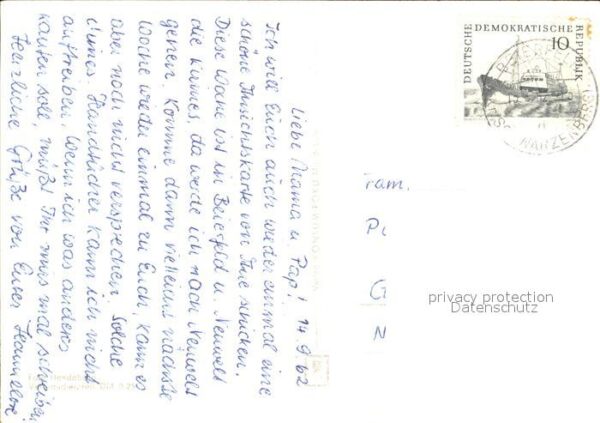 Liebe Mama u. Pap! 14.9.62
Ich will Euch auch wieder einmal eine
schöne Ansichtskarte von Aue schicken.
Diese Woche ist in Beierfeld u. Neuwelt
die Kirmes, da werde ich nach Neuwelt
gehen. Komme dann vielleicht nächste
Woche wieder einmal zu Euch, kann es
aber noch nicht versprechen. Solche
kleines Handtücher kann ich nicht
auftreiben. Wenn ich was anderes
kaufen soll, müßt Ihr mirs mal schreiben
Herzliche Grüße von Eurer Hannelore
DEUTSCHE DEMOKRATISCHE REPUBLIK
10
SCHWARZENBERG
Fam.
P
G
N
privacy protection
Datenschutz